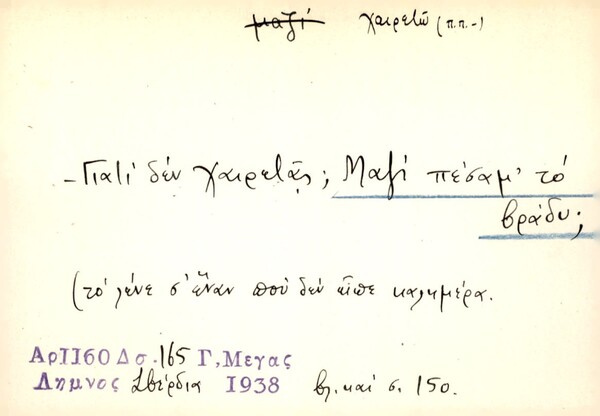 μαζί χαιρετῶ (π.π.-)
- Γιατί δέν χαιρετᾷς; Μαζί πέσαμ' τό
βράδυ;
(τό λένε σ' ἕναν πού δέν εἶπε καλημέρα.
Αρ 1160 Δ σ. 165 Γ. Μεγας
Λημνος Σβέρδια 1938 βλ. καί σ. 150.